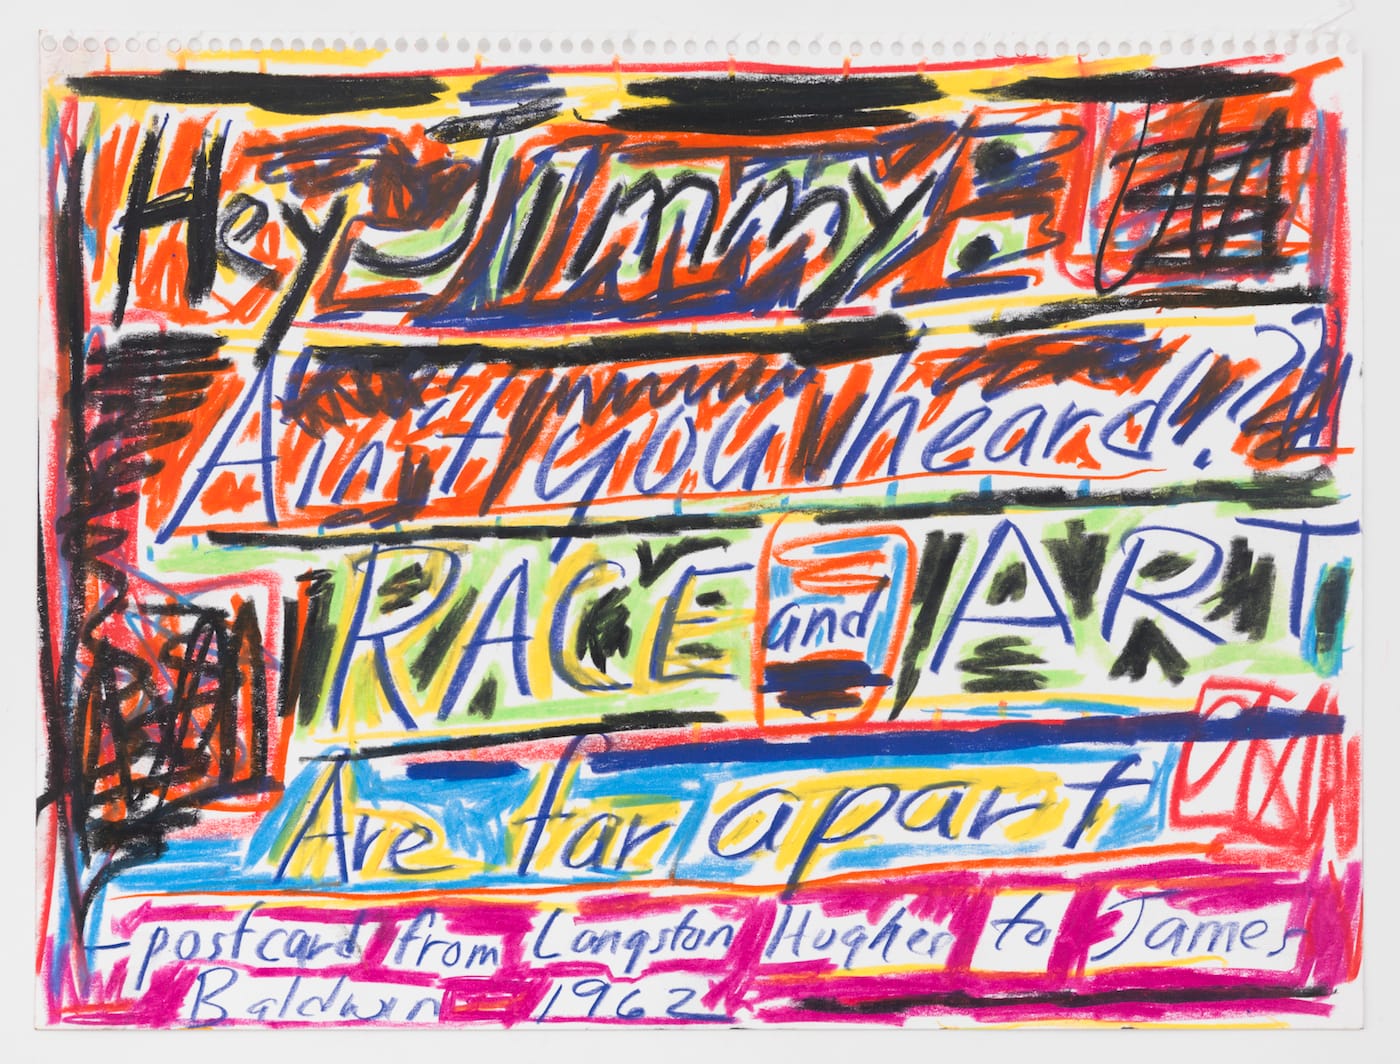 Hey Jimmy:
Ain't you heard!?
RACE and ART
Are far apart
-postcard from Langston Hughes to James
Baldwin 1962